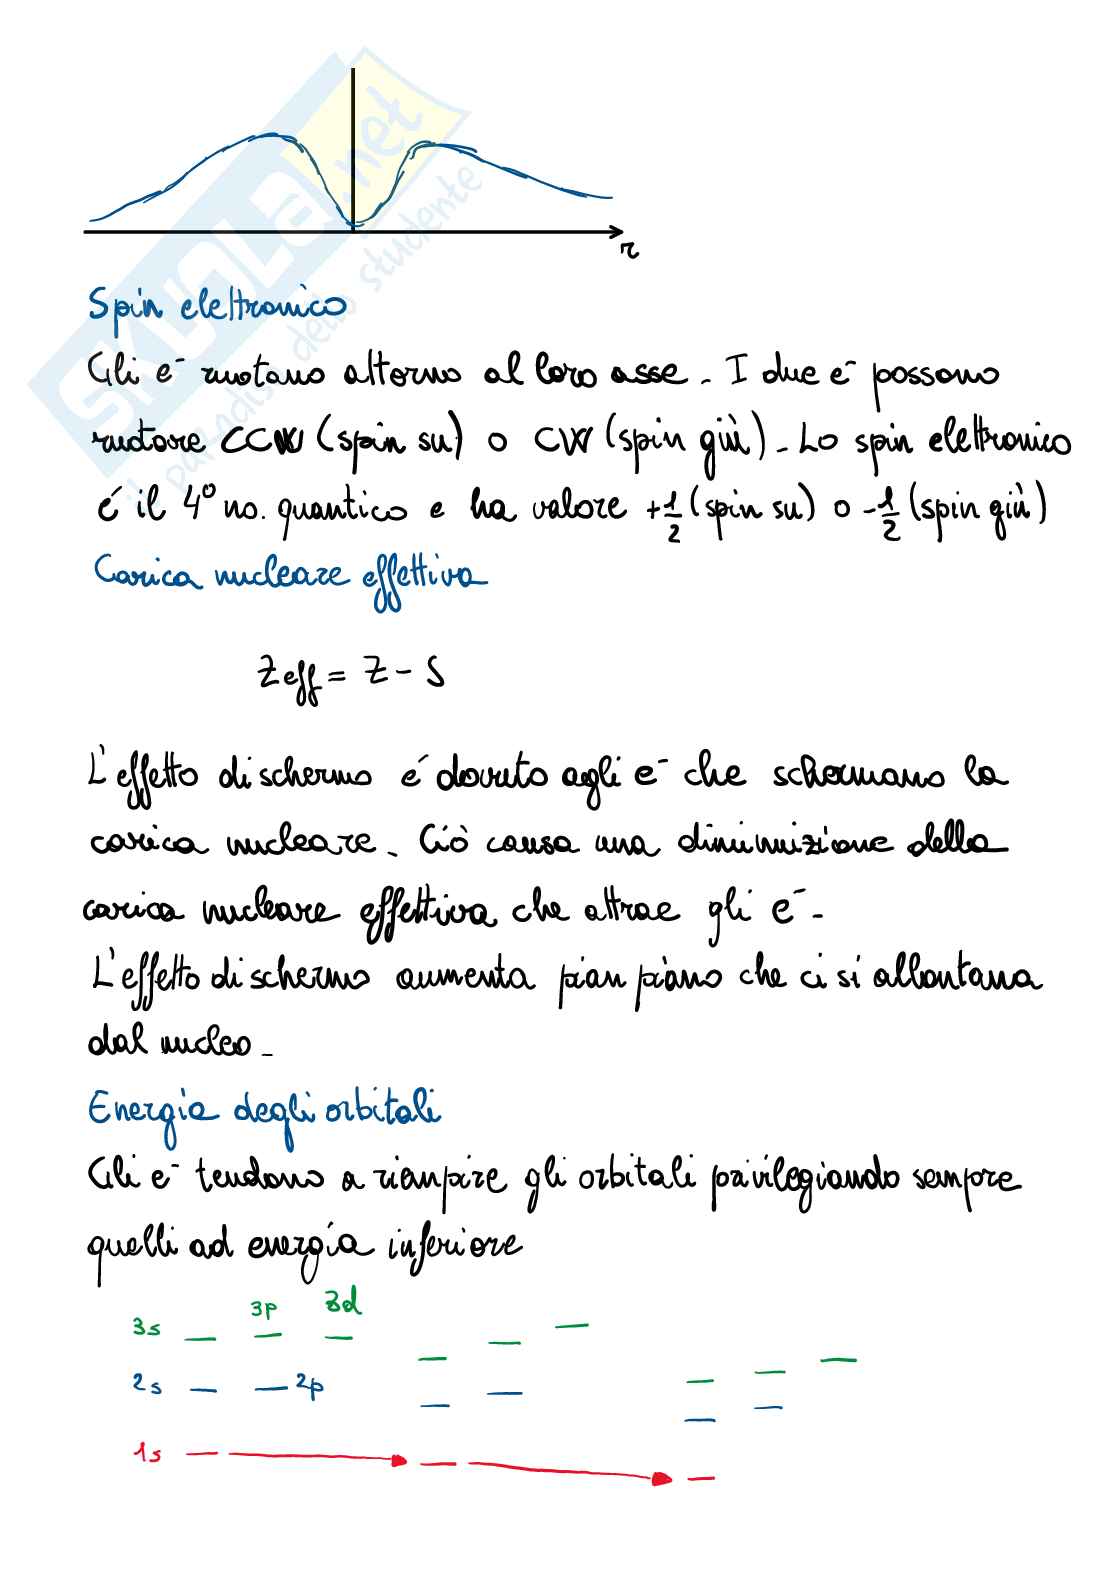 SKUOLA.net
il paradiso dello studente
r
Spin elettronico
Gli e⁻ ruotano attorno al loro asse. I due e⁻ possono
ruotare CCW (spin su) o CW (spin giù). Lo spin elettronico
é il 4° no. quantico e ha valore +1/2 (spin su) o -1/2 (spin giù)
Carica nucleare effettiva
Zeff = Z - S
L'effetto di schermo é dovuto agli e⁻ che schermano la
carica nucleare. Ciò causa una diminuizione della
carica nucleare effettiva che attrae gli e⁻.
L'effetto di schermo aumenta pian piano che ci si allontana
dal nucleo.
Energia degli orbitali
Gli e⁻ tendono a riempire gli orbitali privilegiando sempre
quelli ad energia inferiore
3s 3p 3d
2s 2p
1s